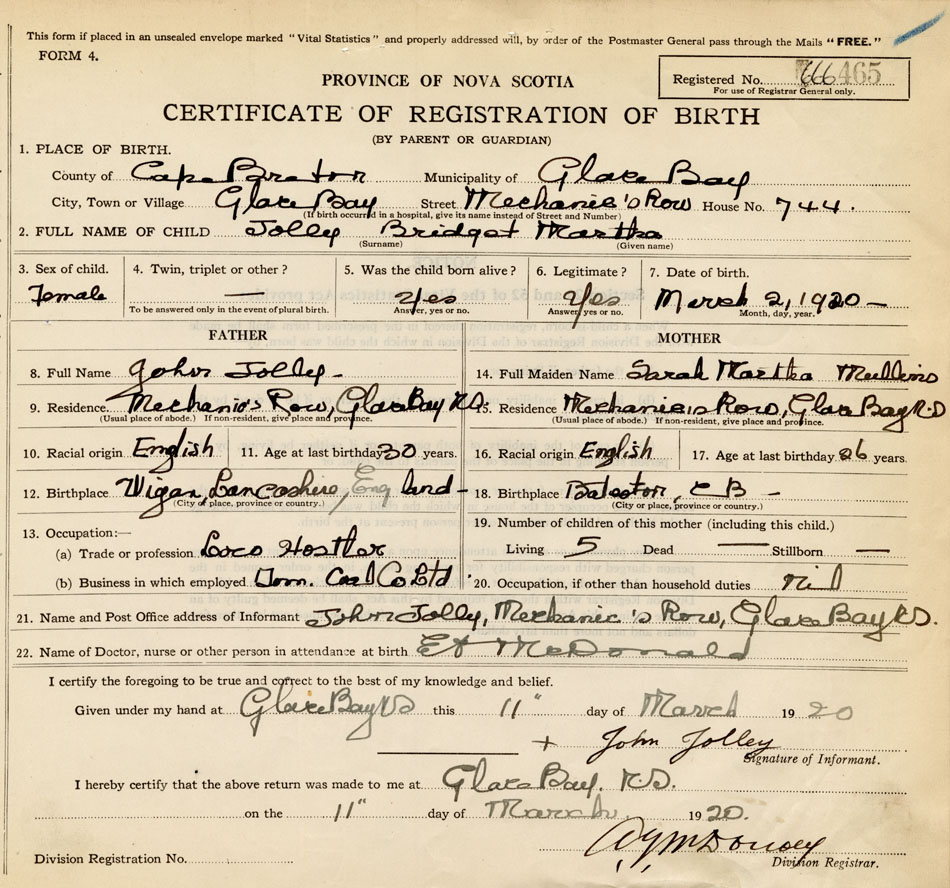 This form if placed in an unsealed envelope marked "Vital Statistics" and properly addressed will, by order of the Postmaster General pass through the Mails "FREE."
FORM 4.
PROVINCE OF NOVA SCOTIA
Registered No. 465
For use of Registrar General only.
CERTIFICATE OF REGISTRATION OF BIRTH
(BY PARENT OR GUARDIAN)
1. PLACE OF BIRTH.
County of Cape Breton Municipality of Glace Bay
City, Town or Village Glace Bay Street Mechanic's Row House No. 744.
(If birth occurred in a hospital, give its name instead of Street and Number)
2. FULL NAME OF CHILD Jolley Bridget Martha
(Surname) (Given name)
3. Sex of child. 4. Twin, triplet or other? 5. Was the child born alive? 6. Legitimate? 7. Date of birth.
Female — Yes Yes March 2, 1920 —
To be answered only in the event of plural birth. Answer, yes or no. Answer, yes or no. Month, day, year.
FATHER MOTHER
8. Full Name John Jolley - 14. Full Maiden Name Sarah Martha Mullins
9. Residence Mechanic's Row, Glace Bay N.S. 15. Residence Mechanic's Row, Glace Bay N.S
(Usual place of abode.) If non-resident, give place and province. (Usual place of abode.) If non-resident, give place and province.
10. Racial origin English 11. Age at last birthday 30 years. 16. Racial origin English 17. Age at last birthday 26 years.
12. Birthplace Wigan, Lancashire, England - 18. Birthplace CB -
(City or place, province or country.) (City or place, province or country.)
13. Occupation:— 19. Number of children of this mother (including this child.)
(a) Trade or profession Loco Hostler Living 5 Dead — Stillborn —
(b) Business in which employed Dom. Coal Co Ltd 20. Occupation, if other than household duties nil
21. Name and Post Office address of Informant John Jolley, Mechanic's Row, Glace Bay NS.
22. Name of Doctor, nurse or other person in attendance at birth McDonald
I certify the foregoing to be true and correct to the best of my knowledge and belief.
Given under my hand at Glace Bay NS this 11" day of March 1920
+ John Jolley
Signature of Informant.
I hereby certify that the above return was made to me at Glace Bay. N.S.
on the 11" day of March 1920.
Division Registration No. Division Registrar.